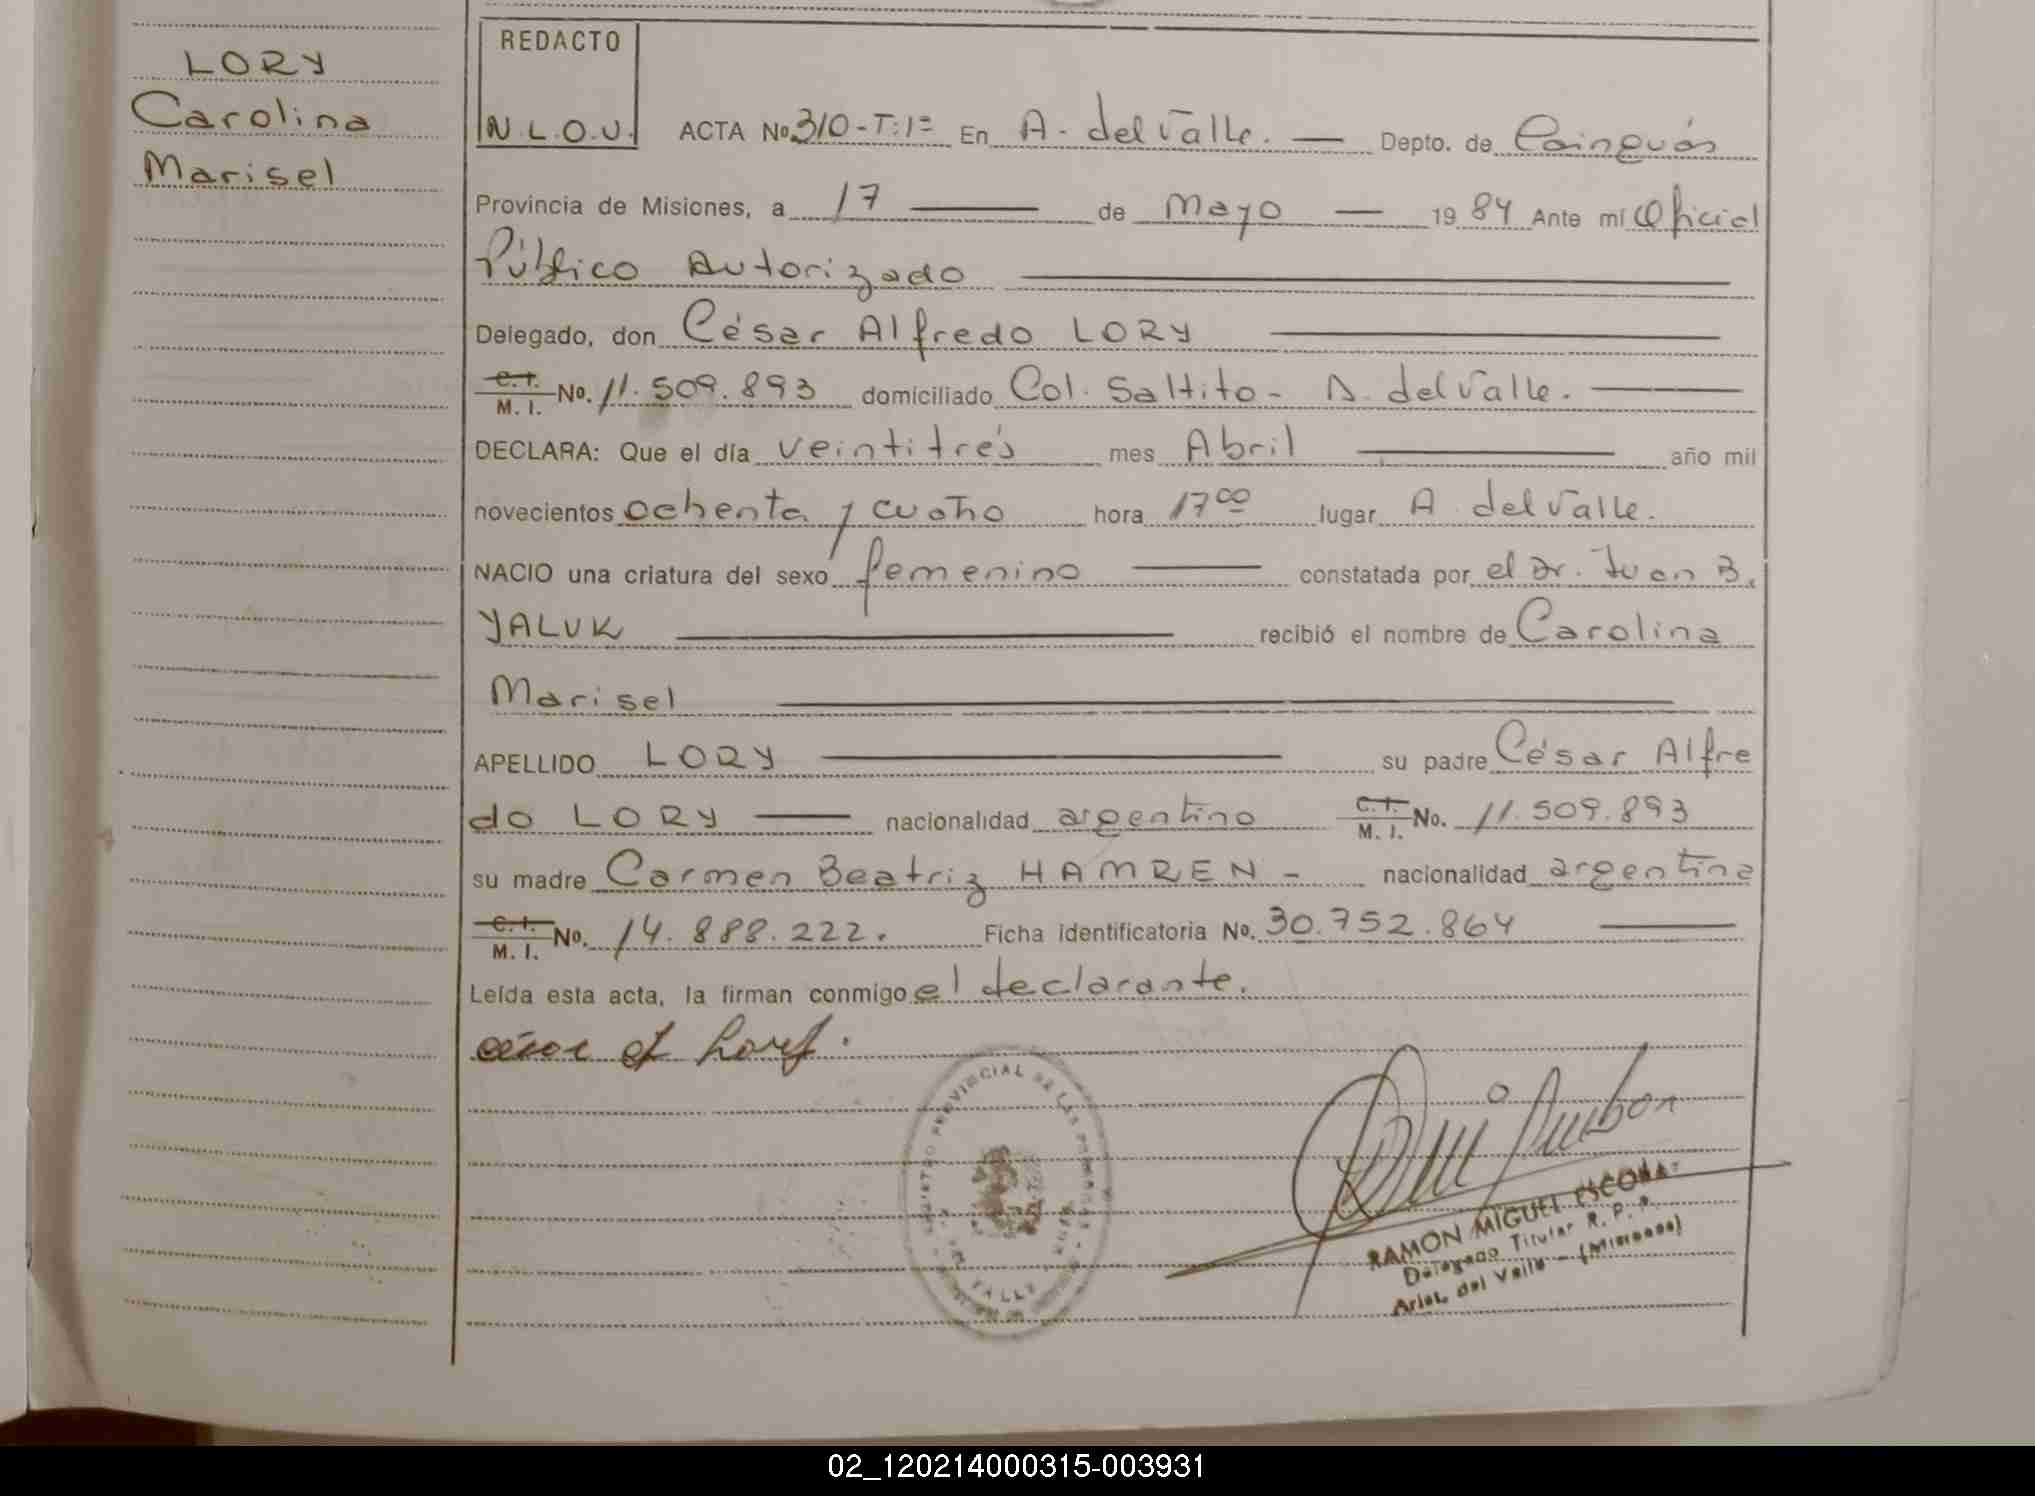 LORY
Carolina
Marisel
REDACTO
N.L.O.V.
ACTA No. 310-T:1º En A. del Valle. Depto. de Cainguás
Provincia de Misiones, a 17 de Mayo 1984 Ante mí Oficial
Público Autorizado
Delegado, don César Alfredo LORY
C.I. M.I. No. 11.509.893 domiciliado Col. Saltito - A. del Valle.
DECLARA: Que el día veintitrés mes Abril año mil
novecientos ochenta y cuatro hora 17 00 lugar A. del Valle.
NACIO una criatura del sexo femenino constatada por el Dr. Juan B.
YALUK recibió el nombre de Carolina
Marisel
APELLIDO LORY su padre César Alfre
do LORY nacionalidad argentino C.I. M.I. No. 11.509.893
su madre Carmen Beatriz HAMREN - nacionalidad argentina
C.I. M.I. No. 14.888.222. Ficha identificatoria No. 30.752.864
Leída esta acta, la firman conmigo el declarante.
PROVINCIAL DE LAS
VALLE
RAMON MIGUEL ESCOBAR
Delegado Titular R. P. P.
Arist. del Valle - (Misiones)
02_120214000315-003931